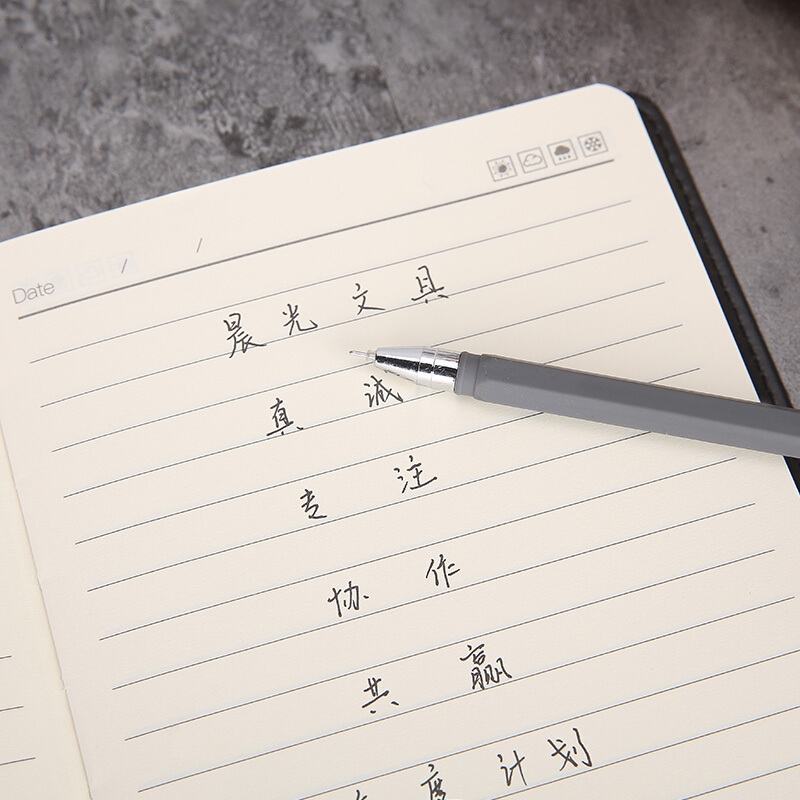 Date / /
晨光文具
真 诚
专 注
协 作
共 赢
度计划